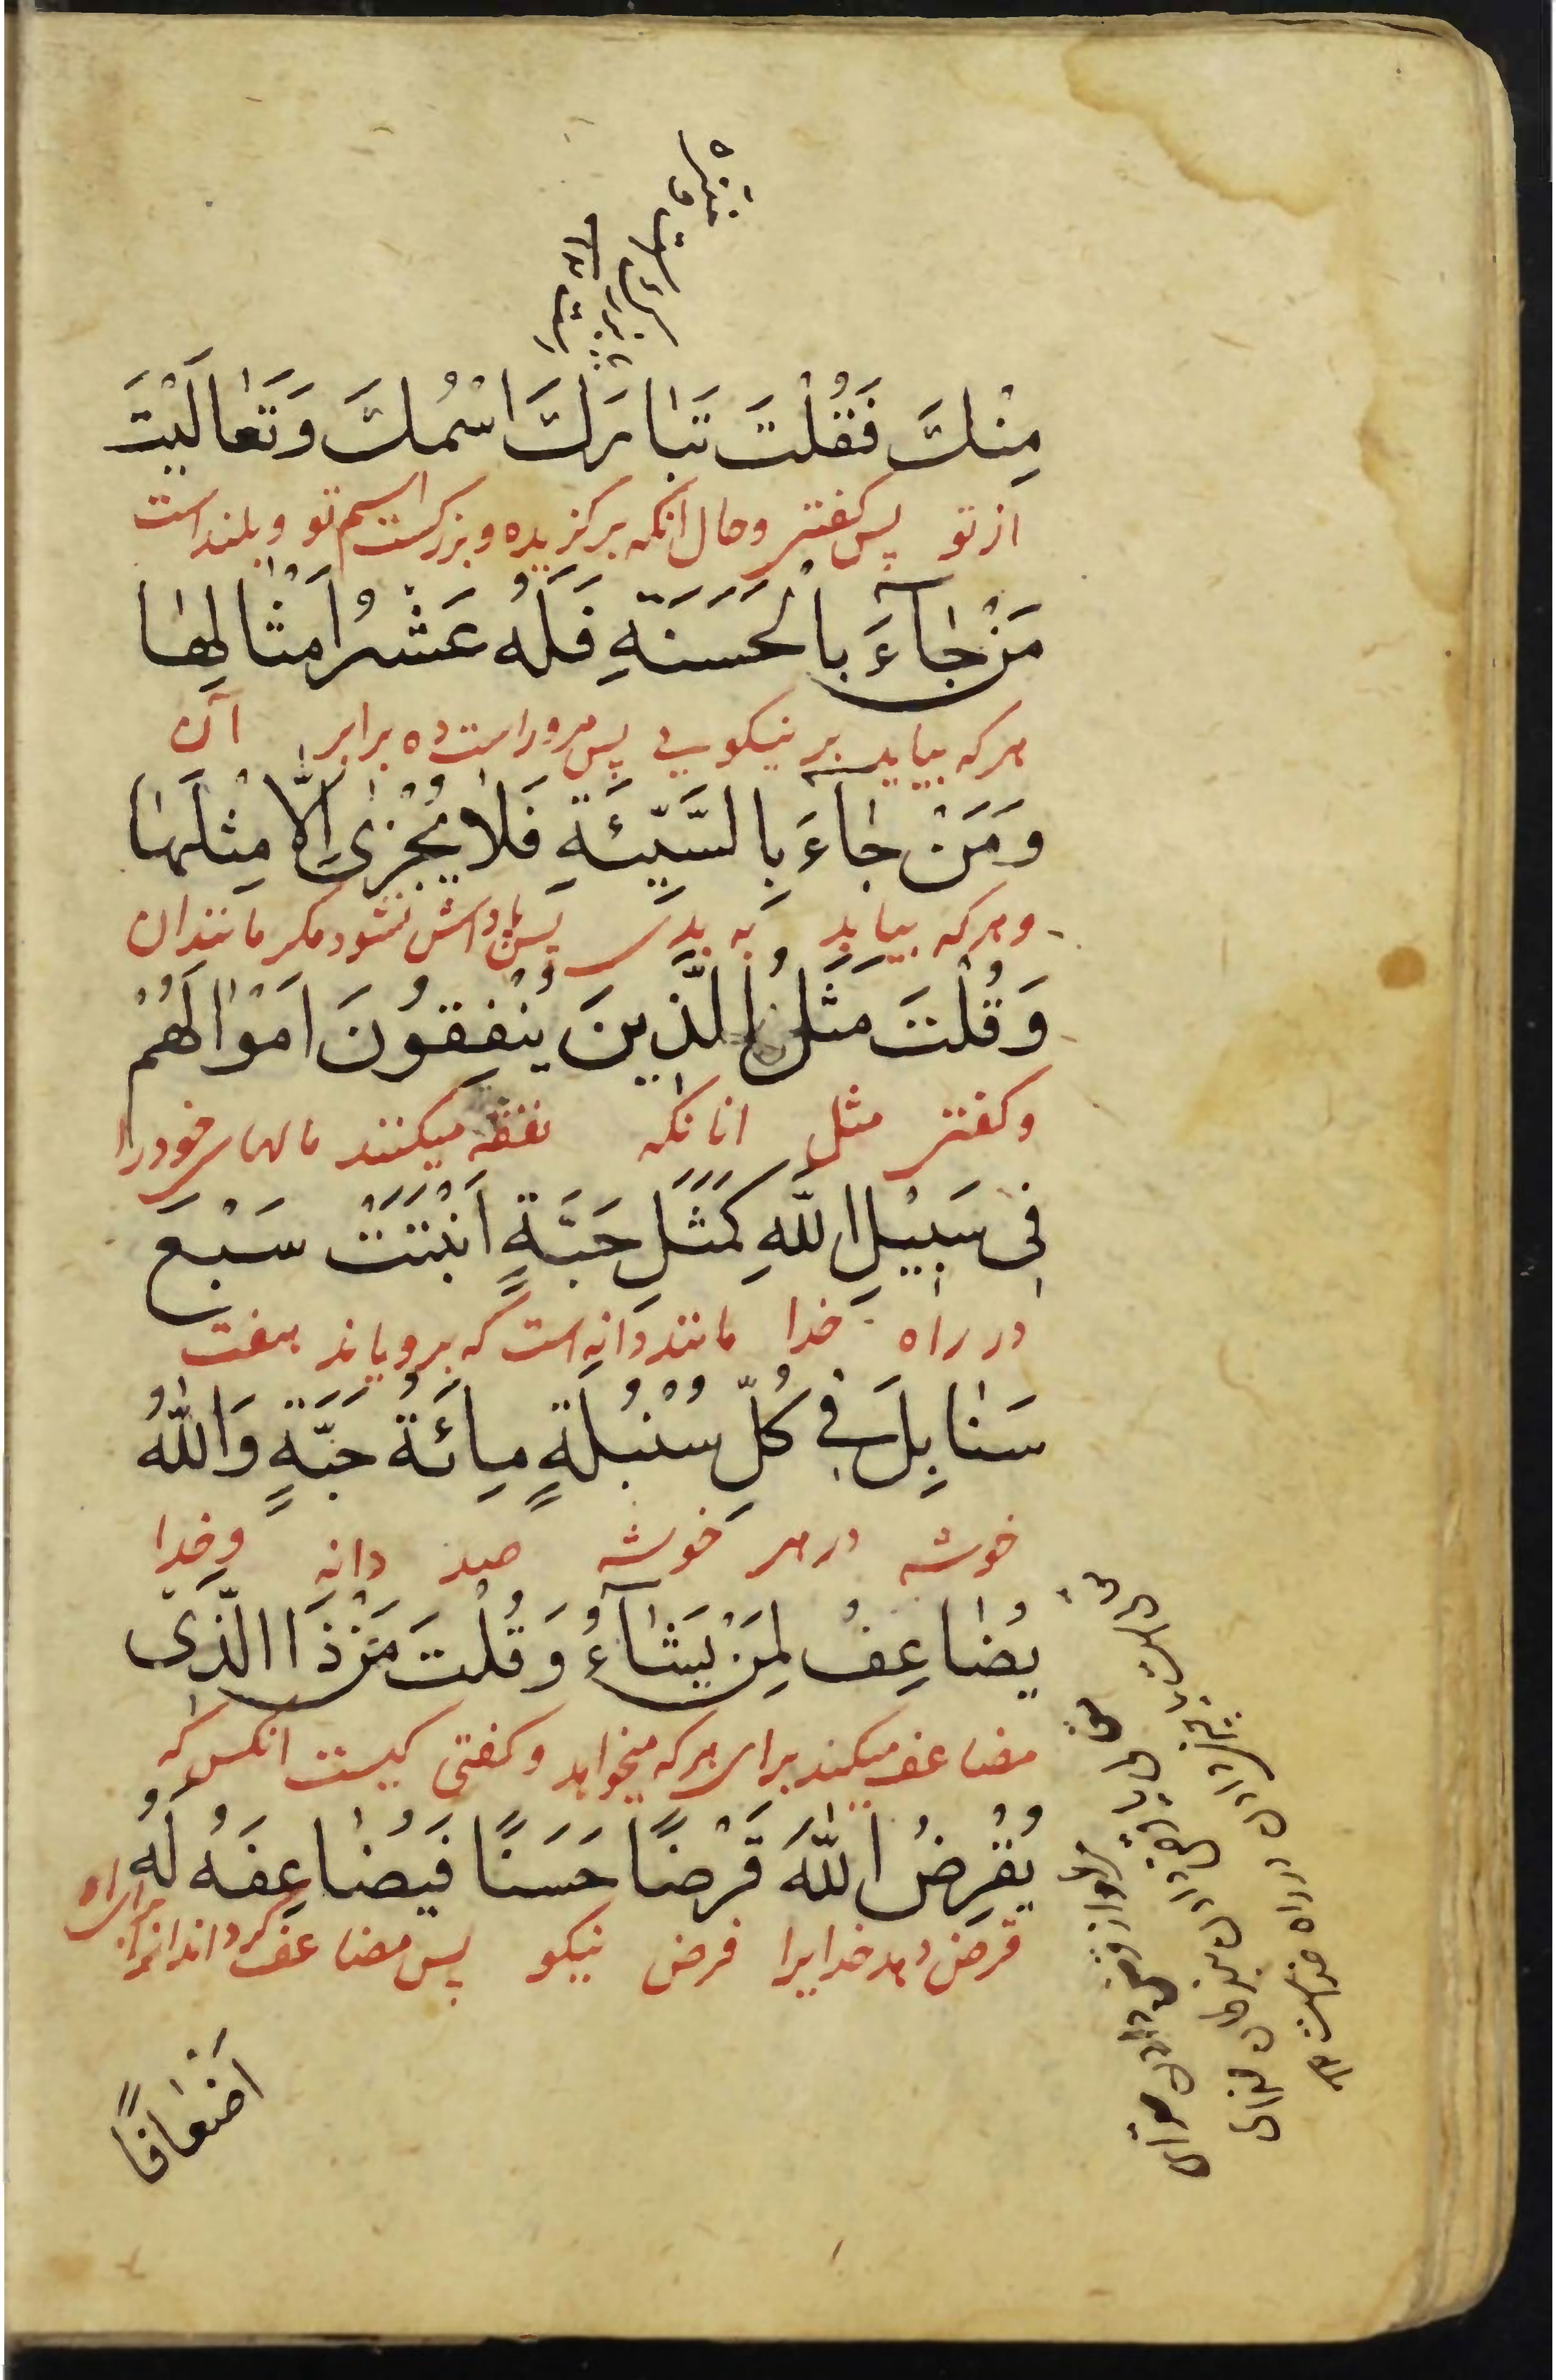 مِنْكَ فَقُلْتَ تَبٰارَكَ اسْمُكَ وَتَعٰالَيْتَ
از تو پس كفتی وحال انكه بركزیده و بزركست اسم تو و بلند است
مَنْ جٰآءَ بِالْحَسَنَةِ فَلَهُ عَشْرُ اَمْثٰالِهٰا
هركه بیاید بر نیكویی پس مر وراست ده برابر آن
وَمَنْ جٰآءَ بِالسَّيِّئَةِ فَلٰا يُجْزٰى اِلّٰا مِثْلَهٰا
وهركه بیاید به بدی پس پاداش نشود مكر مانند ان
وَقُلْتَ مَثَلُ الَّذينَ يُنْفِقُونَ اَمْوٰالَهُمْ
وكفتی مثل انانكه نفقه میكنند مالهای خود را
فِى سَبيْلِ اللّٰهِ كَمَثَلِ حَبَّةٍ اَنْبَتَتْ سَبْعَ
در راه خدا مانند دانه است كه برویاند هفت
سَنٰابِلَ فِي كُلِّ سُنْبُلَةٍ مِائَةُ حَبَّةٍ وَاللّٰهُ
خوشه در هر خوشه صد دانه وخدا
يُضٰاعِفُ لِمَنْ يَشٰآءُ وَقُلْتَ مَنْ ذَا الَّذى
مضاعف میكند برای هركه میخواهد وكفتی كیست انكس كه
يُقْرِضُ اللّٰهَ قَرْضًا حَسَنًا فَيُضٰاعِفَهُ لَهُ
قرض دهد خدایرا قرض نیكو پس مضاعف كرداند انرا برای او
اَضْعٰافًا